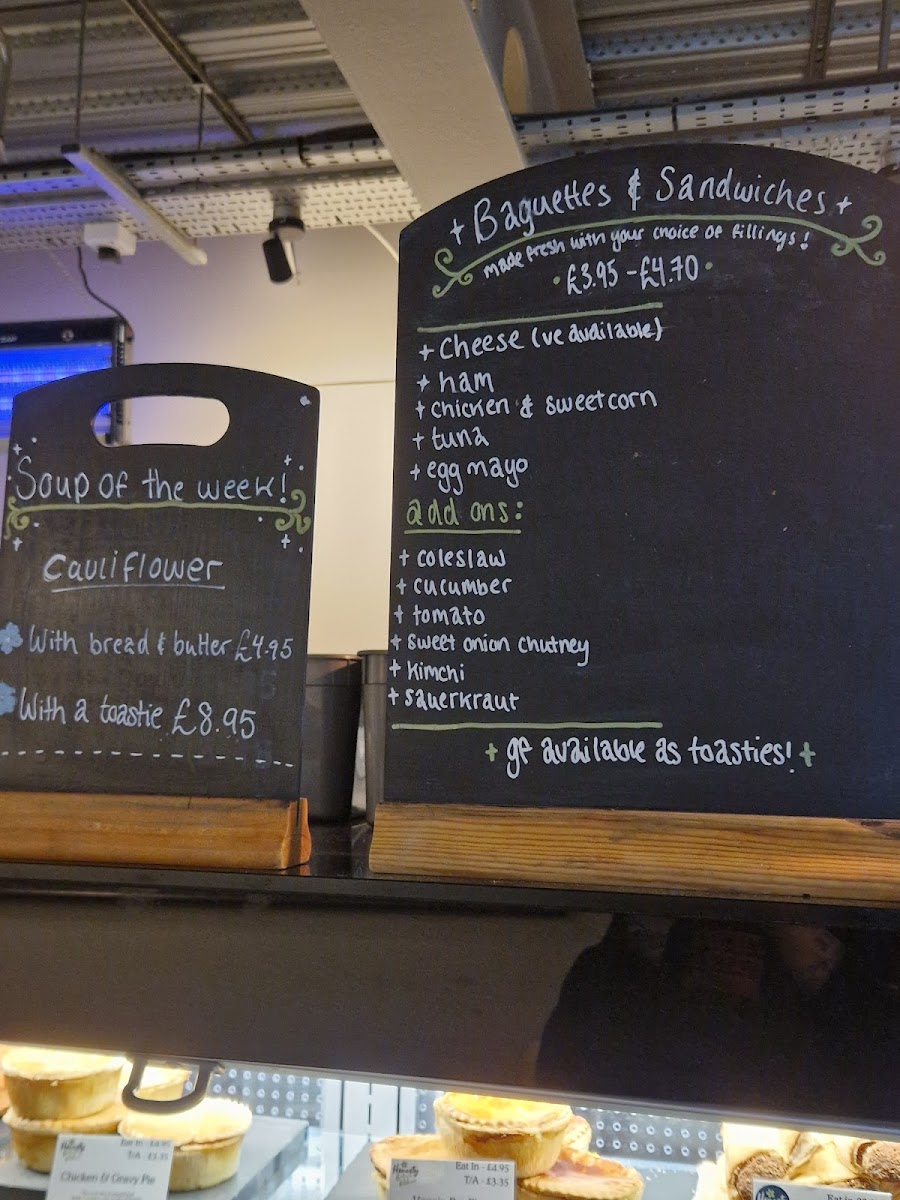 Soup of the week!
Cauliflower
With bread & butter £4.95
With a toastie £8.95
+ Baguettes & Sandwiches +
made fresh with your choice of fillings!
• £3.95 - £4.70 •
+ Cheese (ve available)
+ ham
+ chicken & sweetcorn
+ tuna
+ egg mayo
add ons:
+ coleslaw
+ cucumber
+ tomato
+ sweet onion chutney
+ kimchi
+ sauerkraut
+ gf available as toasties! +
Eat In - £4.95
T/A - £3.35
Chicken & Gravy Pie
Eat In - £4.95
T/A - £3.35
Eat In